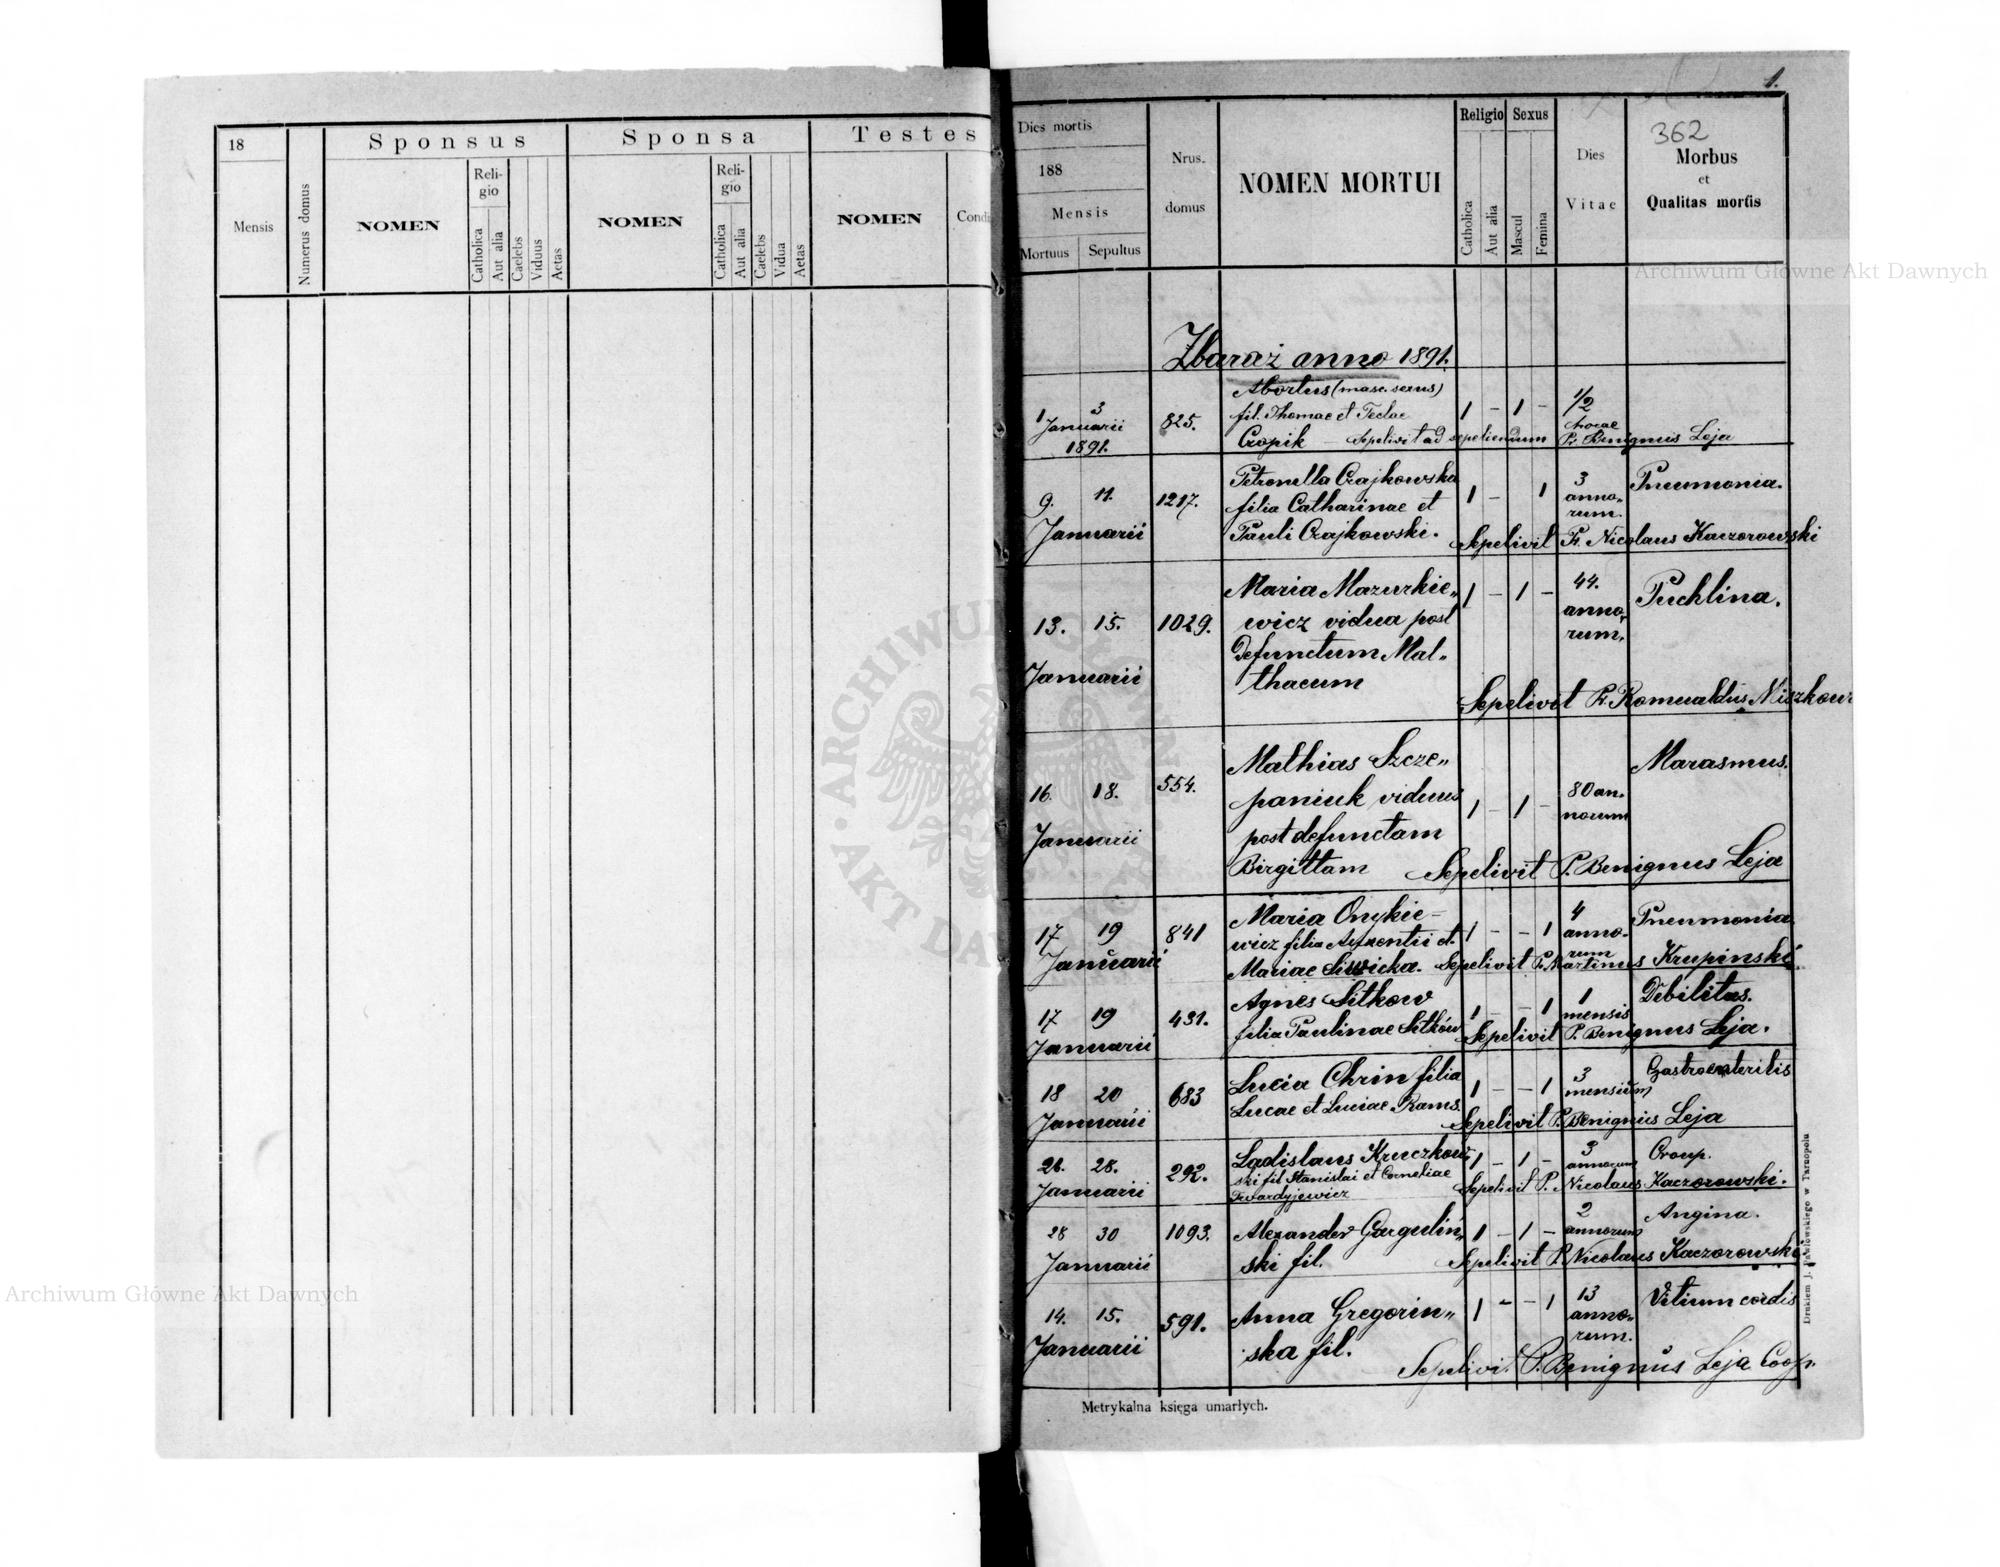 18
Mensis
Numerus domus
Sponsus
NOMEN
Reli-
gio
Catholica
Aut alia
Caelebs
Viduus
Aetas
Sponsa
NOMEN
Reli-
gio
Catholica
Aut alia
Caelebs
Vidua
Aetas
Testes
NOMEN
Condi
1.
Dies mortis
188
Mensis
Mortuus
Sepultus
Nrus.
domus
NOMEN MORTUI
Religio
Catholica
Aut alia
Sexus
Mascul
Femina
Dies
Vitae
362
Morbus
et
Qualitas mortis
Archiwum Główne Akt Dawnych
Zbaraż anno 1891.
1 3
Januarii
1891.
825.
Abortus (masc. sexus)
fil. Thomae et Teclae
Czopik – Sepelivit ad sepeliendum Pr. Benignus Leja
1 – 1 –
1/2
horae
9. 11.
Januarii
1217.
Petronella Czajkowska
filia Catharinae et
Pauli Czajkowski.
1 – 1
3
anno„
rum.
Pneumonia.
Sepelivit Fr. Nicolaus Kaczorowski
13. 15.
Januarii
1029.
Maria Mazurkie„
wicz vidua post
Defunctum Mat„
thaeum
1 – 1 –
44.
anno„
rum,
Puchlina.
Sepelivit Fr. Romualdus Miszkow
16. 18.
Januarii
554.
Mathias Szcze„
paniuk viduus
post defunctam
Birgittam
1 – 1 –
80 an.
norum
Marasmus.
Sepelivit P. Benignus Leja
17 19
Januarii
841
Maria Onykie–
wicz filia Auxentii et
Mariae Siwicka.
1 – – 1
4
anno-
rum
Pneumonia
Sepelivit Fr. Martinus Krupinski
17 19
Januarii
431.
Agnes Sitkow
filia Paulinae Sitków
1 – – 1
1
mensis
Debilitas.
Sepelivit P. Benignus Leja.
18 20
Januarii
683
Lucia Chrin filia
Lucae et Luciae Rams.
1 – – 1
3
mensium
Gastroenteritis
Sepelivit P. Benignus Leja
26. 28.
Januarii
292.
Ladislaus Kruczkow„
ski fil Stanislai et Corneliae
Twardyjewicz
1 – 1 –
3
annorum
Croup.
Sepelivit P. Nicolaus Kaczorowski.
28 30
Januarii
1093.
Alexander Gargulin„
ski fil.
1 – 1 –
2
annorum
Angina.
Sepelivit P. Nicolaus Kaczorowski
14. 15.
Januarii
591.
Anna Gregorin„
ska fil.
1 – – 1
13
anno„
rum.
Vitium cordis
Sepelivit P. Benignus Leja Coop.
Metrykalna księga umarłych.
Drukiem J. Pawłowskiego w Tarnopolu
Archiwum Główne Akt Dawnych
ARCHIWUM GŁÓWNE AKT DAWNYCH